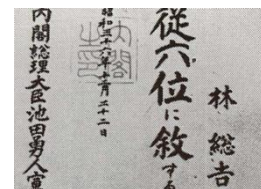 林総吉
従六位に叙する
昭和三十六年十二月二十二日
内閣総理大臣池田勇人宣